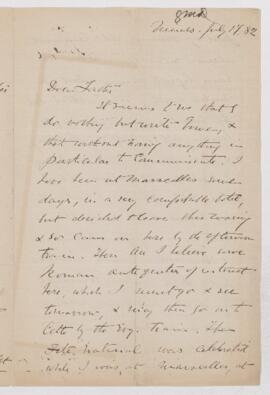 July 17. 82
Dear Father
It seems to me that I
do nothing but write home, &
that without having anything in
particular to communicate. I
have been at Marseilles some
days, in a very comfortable hotel,
but decided to leave this evening
& so came on here by the afternoon
train. There are I believe some
Roman antiquities of interest
here, which I must go & see
tomorrow, & may then go on to
Cette by the train. The
Fete National was celebrated
while I was at Marseilles, at